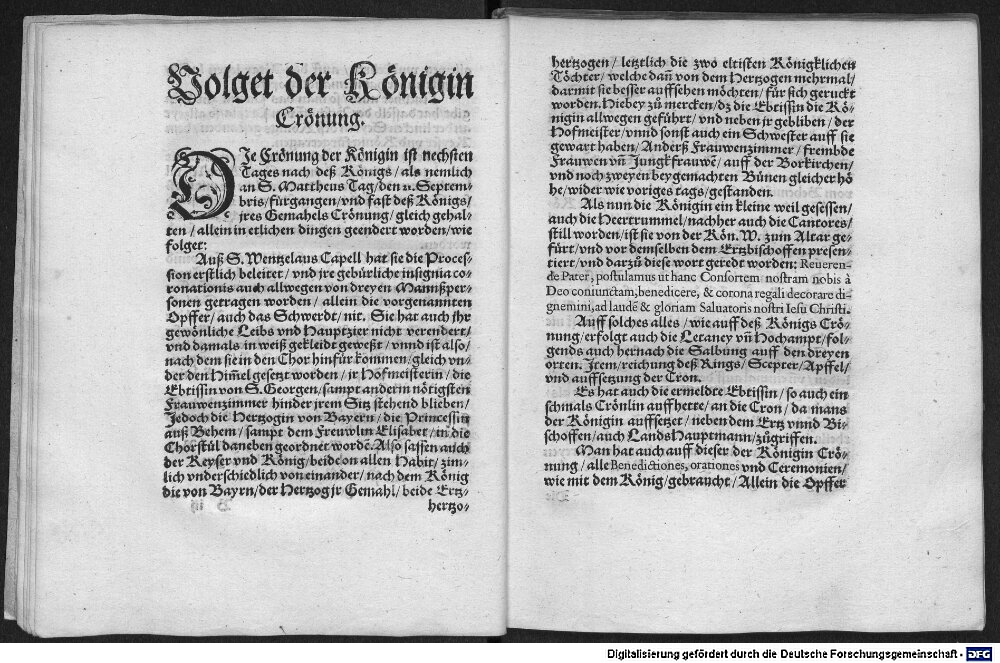 Volget der Königin
Crönung.
DIe Crönung der Königin ist nechsten
Tages nach deß Königs / als nemlich
an S. Mattheus Tag / den 21. Septem-
bris / fürgangen / vnd fast deß Königs /
jres Gemahels Crönung / gleich gehal-
ten / allein in etlichen dingen geendert worden / wie
folget:
Auß S. Wentzelaus Capell hat sie die Proces-
sion erstlich beleitet / vnd jre gebürliche insignia co-
ronationis auch allwegen von dreyen Mannßper-
sonen getragen worden / allein die vorgenannten
Opffer / auch das Schwerdt / nit. Sie hat auch jhr
gewönliche Leibs vnd Hauptzier nicht verendert /
vnd damals in weiß gekleidt geweßt / vnnd ist also /
nach dem sie in den Chor hinfür kommen / gleich vn-
der den Him̃el gesetzt worden / jr Hofmeisterin / die
Ebtissin von S. Georgen / sampt anderm nötigsten
Frauwenzimmer hinder jrem Sitz stehend blieben /
Jedoch die Hertzogin von Bayern / die Princessin
auß Behem / sampt dem Freuwlin Elisabet / in die
Chorstül daneben geordnet wordẽ. Also sassen auch
der Keyser vnd König / beide on allen Habit / zim-
lich vnderschiedlich von einander / nach dem König
die von Bayrn / der Hertzog jr Gemahl / beide Ertz-
hertzo-
hertzogen / letztlich die zwo eltisten Königklichen
Töchter / welche dañ von dem Hertzogen mehrmal /
darmit sie besser auffsehen möchten / für sich geruckt
worden. Hiebey zů mercken / dz die Ebtissin die Kö-
nigin allwegen geführt / vnd neben jr gebliben / der
Hofmeister / vnnd sonst auch ein Schwester auff sie
gewart haben / Anderß Frauwenzimmer / frembde
Frauwen vñ Jungkfrauwẽ / auff der Borkirchen /
vnd noch zweyen beygemachten Bünen gleicher hö
he / wider wie voriges tags / gestanden.
Als nun die Königin ein kleine weil gesessen /
auch die Heertrummel / nachher auch die Cantores /
still worden / ist sie von der Kön. W. zum Altar ge-
fürt / vnd vor demselben dem Ertzbischoffen presen-
tiert / vnd darzů diese wort geredt worden: Reueren-
de Pater, postulamus ut hanc Consortem nostram nobis à
Deo coniunctam, benedicere, & corona regali decorare di-
gnemini, ad laudẽ & gloriam Saluatoris nostri Iesu Christi.
Auff solches alles / wie auff deß Königs Crö-
nung / erfolgt auch die Letaney vñ Hochampt / fol-
gends auch hernach die Salbung auff den dreyen
orten. Jtem / reichung deß Rings / Scepter / Apffel /
vnd auffsetzung der Cron.
Es hat auch die ermeldte Ebtissin / so auch ein
schmals Crönlin auff hette / an die Cron / da mans
der Königin auffsetzet / neben dem Ertz vnnd Bi-
schoffen / auch Lands Hauptmann / zůgriffen.
Man hat auch auff dieser der Königin Crö-
nung / alle Benedictiones, orationes vnd Ceremonien /
wie mit dem König / gebraucht / Allein die Opffer
Digitalisierung gefördert durch die Deutsche Forschungsgemeinschaft - DFG